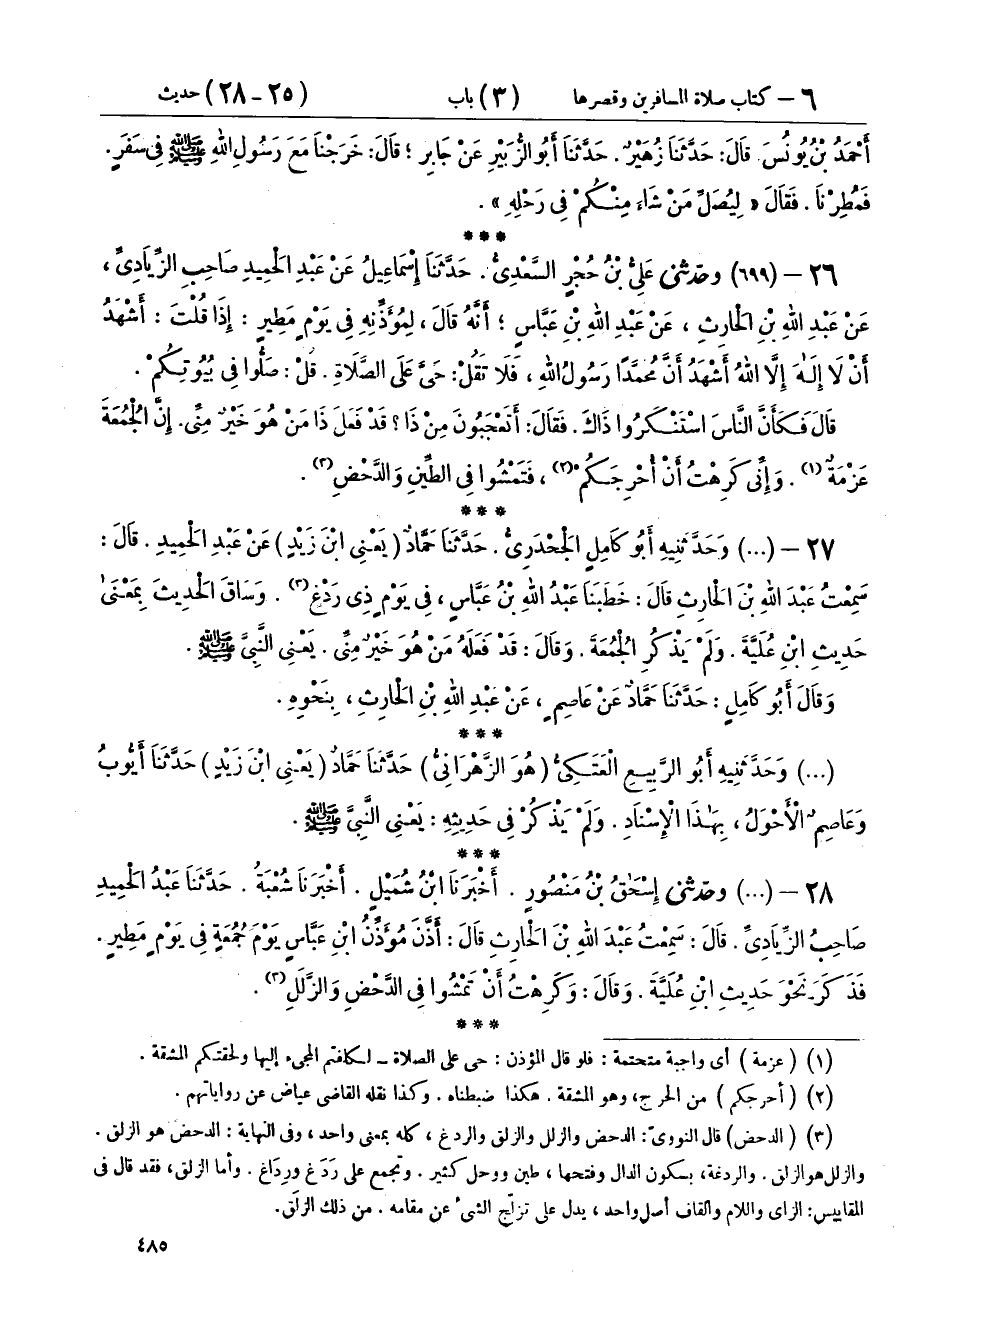 ٦ – كتاب صلاة المسافرين وقصرها (٣) باب (٢٥ – ٢٨) حديث
أَحْمَدُ بْنُ يُونُسَ. قَالَ: حَدَّثَنَا زُهَيْرٌ. حَدَّثَنَا أَبُو الزُّبَيْرِ عَنْ جَابِرٍ؛ قَالَ: خَرَجْنَا مَعَ رَسُولِ اللهِ ﷺ فِي سَفَرٍ.
فَمُطِرْنَا. فَقَالَ « لِيُصَلِّ مَنْ شَاءَ مِنْكُمْ فِي رَحْلِهِ ».
***
٢٦ – (٦٩٩) وحدّثني عَلِيُّ بْنُ حُجْرٍ السَّعْدِيُّ. حَدَّثَنَا إِسْمَاعِيلُ عَنْ عَبْدِ الْحَمِيدِ صَاحِبِ الزِّيَادِيِّ،
عَنْ عَبْدِ اللهِ بْنِ الْحَارِثِ، عَنْ عَبْدِ اللهِ بْنِ عَبَّاسٍ؛ أَنَّهُ قَالَ، لِمُؤَذِّنِهِ فِي يَوْمٍ مَطِيرٍ: إِذَا قُلْتَ: أَشْهَدُ
أَنْ لَا إِلَٰهَ إِلَّا اللهُ أَشْهَدُ أَنَّ مُحَمَّدًا رَسُولُ اللهِ، فَلَا تَقُلْ: حَيَّ عَلَى الصَّلَاةِ. قُلْ: صَلُّوا فِي بُيُوتِكُمْ.
قَالَ فَكَأَنَّ النَّاسَ اسْتَنْكَرُوا ذَاكَ. فَقَالَ: أَتَعْجَبُونَ مِنْ ذَا؟ قَدْ فَعَلَ ذَا مَنْ هُوَ خَيْرٌ مِنِّي. إِنَّ الْجُمُعَةَ
عَزْمَةٌ (١). وَإِنِّي كَرِهْتُ أَنْ أُحْرِجَكُمْ (٢)، فَتَمْشُوا فِي الطِّينِ وَالدَّحْضِ (٣).
***
٢٧ – (...) وَحَدَّثَنِيهِ أَبُو كَامِلٍ الْجَحْدَرِيُّ. حَدَّثَنَا حَمَّادٌ ( يَعْنِي ابْنَ زَيْدٍ ) عَنْ عَبْدِ الْحَمِيدِ. قَالَ:
سَمِعْتُ عَبْدَ اللهِ بْنَ الْحَارِثِ قَالَ: خَطَبَنَا عَبْدُ اللهِ بْنُ عَبَّاسٍ، فِي يَوْمٍ ذِي رَدْغٍ (٣). وَسَاقَ الْحَدِيثَ بِمَعْنَىٰ
حَدِيثِ ابْنِ عُلَيَّةَ. وَلَمْ يَذْكُرِ الْجُمُعَةَ. وَقَالَ: قَدْ فَعَلَهُ مَنْ هُوَ خَيْرٌ مِنِّي. يَعْنِي النَّبِيَّ ﷺ.
وَقَالَ أَبُو كَامِلٍ: حَدَّثَنَا حَمَّادٌ عَنْ عَاصِمٍ، عَنْ عَبْدِ اللهِ بْنِ الْحَارِثِ، بِنَحْوِهِ.
***
(...) وَحَدَّثَنِيهِ أَبُو الرَّبِيعِ الْعَتَكِيُّ ( هُوَ الزَّهْرَانِيُّ ) حَدَّثَنَا حَمَّادٌ ( يَعْنِي ابْنَ زَيْدٍ ) حَدَّثَنَا أَيُّوبُ
وَعَاصِمٌ الْأَحْوَلُ، بِهَٰذَا الْإِسْنَادِ. وَلَمْ يَذْكُرْ فِي حَدِيثِهِ: يَعْنِي النَّبِيَّ ﷺ.
***
٢٨ – (...) وحدّثني إِسْحَقُ بْنُ مَنْصُورٍ. أَخْبَرَنَا ابْنُ شُمَيْلٍ. أَخْبَرَنَا شُعْبَةُ. حَدَّثَنَا عَبْدُ الْحَمِيدِ
صَاحِبُ الزِّيَادِيِّ. قَالَ: سَمِعْتُ عَبْدَ اللهِ بْنَ الْحَارِثِ قَالَ: أَذَّنَ مُؤَذِّنُ ابْنِ عَبَّاسٍ يَوْمَ جُمُعَةٍ فِي يَوْمٍ مَطِيرٍ.
فَذَكَرَ نَحْوَ حَدِيثِ ابْنِ عُلَيَّةَ. وَقَالَ: وَكَرِهْتُ أَنْ تَمْشُوا فِي الدَّحْضِ وَالزَّلَلِ (٣).
***
(١) ( عزمة ) أي واجبة متحتمة: فلو قال المؤذن: حي على الصلاة – لكلفتم المجيء إليها ولحقتكم المشقة.
(٢) ( أحرجكم ) من الحرج، وهو المشقة. هكذا ضبطناه. وكذا نقله القاضي عياض عن رواياتهم.
(٣) ( الدحض ) قال النوويّ: الدحض والزلل والزلق والردغ، كله بمعنى واحد، وفي النهاية: الدحض هو الزلق.
والزلل هو الزلق. والردغة، بسكون الدال وفتحها، طين ووحل كثير. وتجمع على رَدَغ ورِدَاغ. وأما الزلق، فقد قال في
المقاييس: الزاي واللام والقاف أصل واحد، يدل على تزلّج الشيء عن مقامه. من ذلك الزلَق.
٤٨٥